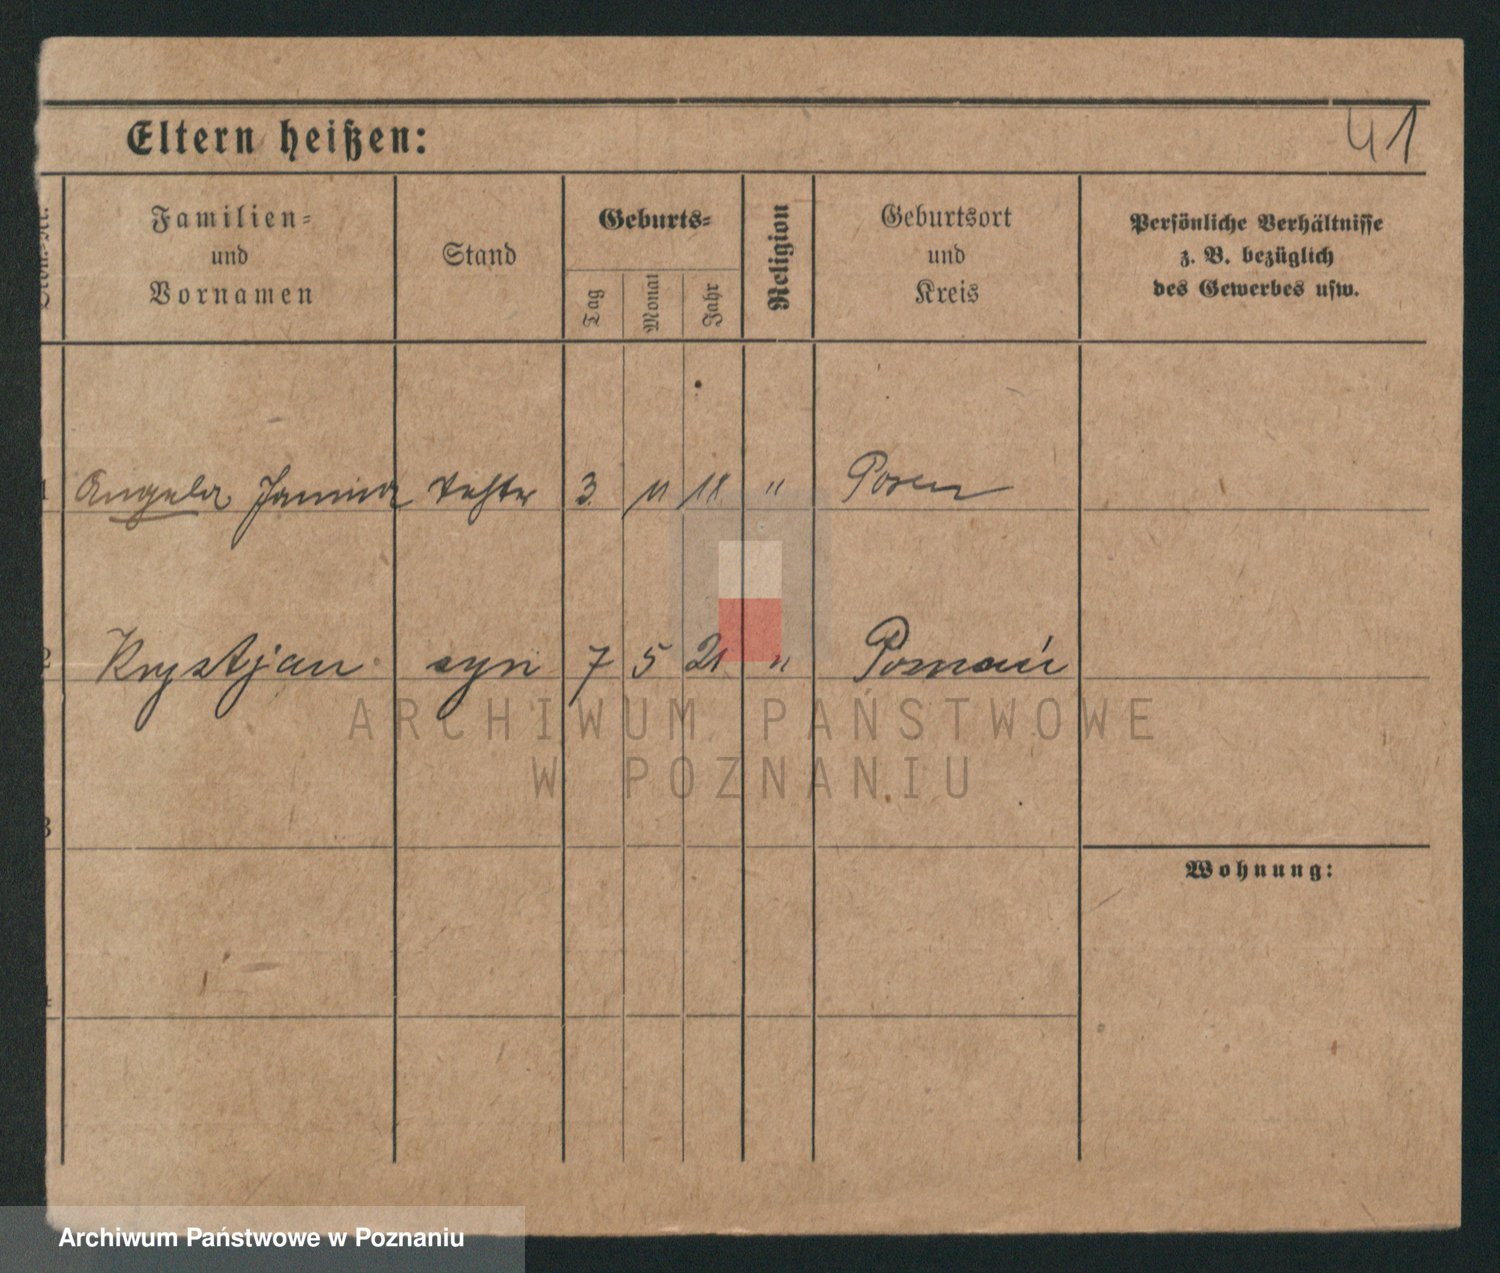 41
Eltern heißen:
Familien-
und
Vornamen
Stand
Geburts-
Tag
Monat
Jahr
Religion
Geburtsort
und
Kreis
Persönliche Verhältnisse
z. B. bezüglich
des Gewerbes usw.
1 Angela Janina Tochter 3 11 18 " Posen
2 Krystjan syn 7 5 21 " Poznań
3
Wohnung:
ARCHIWUM PAŃSTWOWE
W POZNANIU
Archiwum Państwowe w Poznaniu